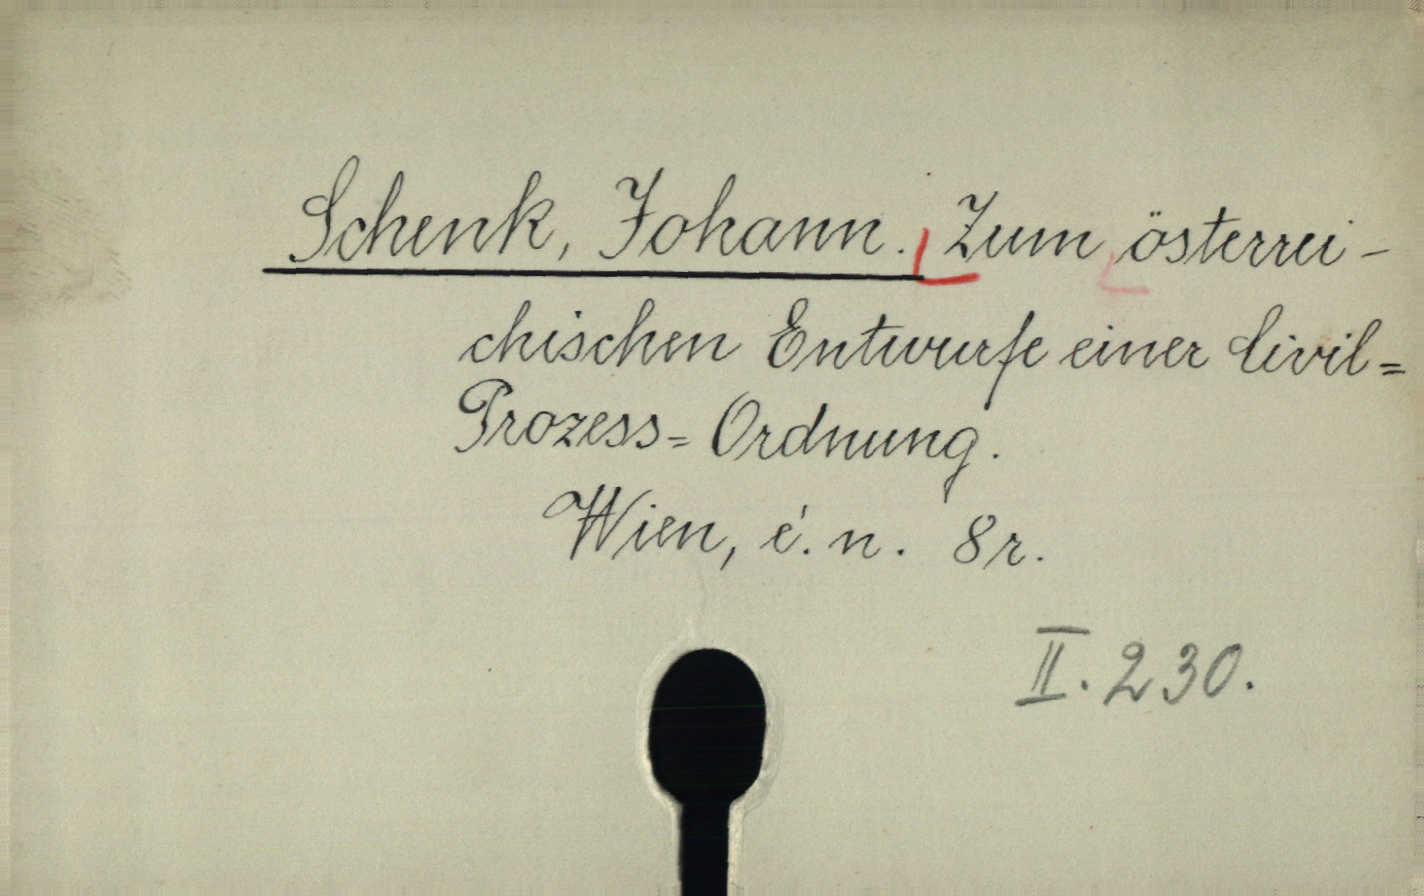 Schenk, Johann. Zum österrei-
chischen Entwurfe einer Civil=
Prozess=Ordnung.
Wien, é. n. 8r.
II. 230.